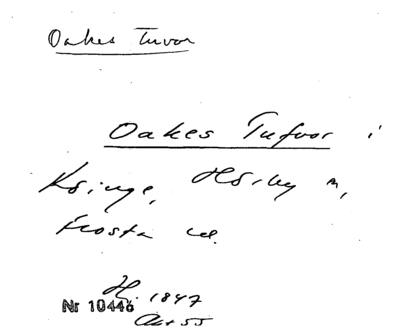 Oakes Tuvor
Oakes Tufvor i
Kringe, Hörby n,
Frosta hd.
H. 1847
Nr 10446
Akt 55